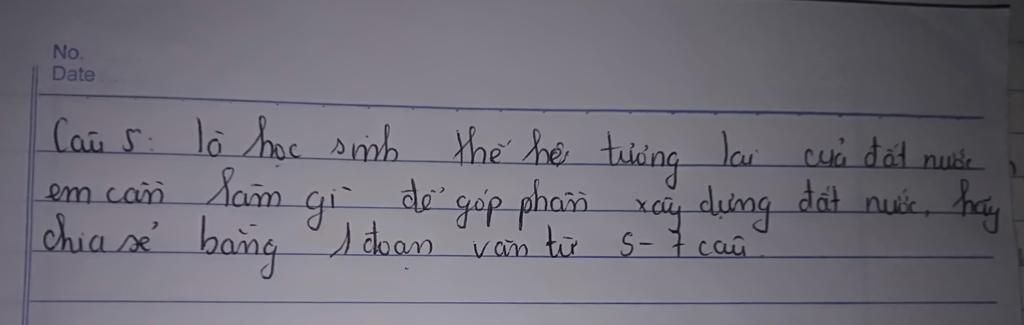 No.
Date
Câu 5: là học sinh thế hệ tương lai của đất nước
em cần làm gì để góp phần xây dựng đất nước, hãy
chia sẻ bằng 1 đoạn văn từ 5-7 câu